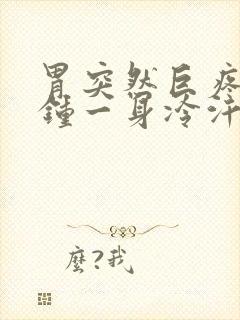 胃突然巨疼
鐘一身冷汗
麼?我